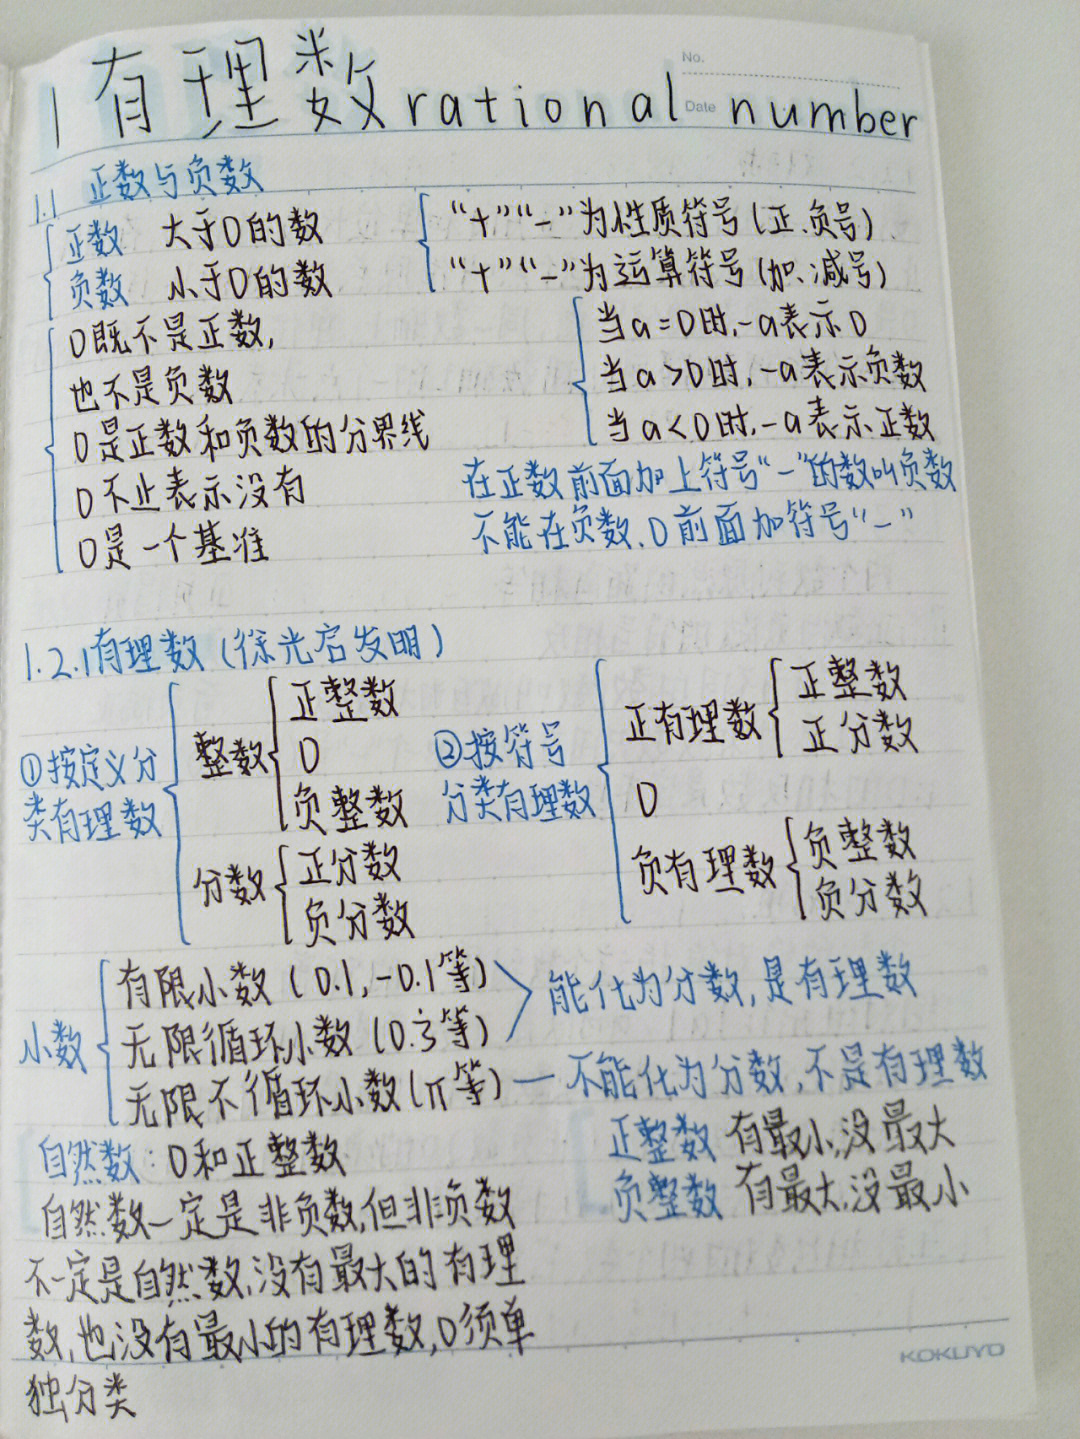 No.
Date
1 有理数 rational number
1.1 正数与负数
正数 大于0的数
负数 小于0的数
“+”“-”为性质符号(正.负号)
“+”“-”为运算符号(加.减号)
0既不是正数,
也不是负数
0是正数和负数的分界线
0不止表示没有
0是一个基准
当a=0时,-a表示0
当a>0时,-a表示负数
当a<0时,-a表示正数
在正数前面加上符号“-”的数叫负数
不能在负数.0前面加符号“-”
1.2.1有理数(徐光启发明)
①按定义分
类有理数
整数
正整数
0
负整数
分数
正分数
负分数
②按符号
分类有理数
正有理数
正整数
正分数
0
负有理数
负整数
负分数
小数
有限小数(0.1,-0.1等)
无限循环小数(0.3̇等)
能化为分数,是有理数
无限不循环小数(π等)—不能化为分数,不是有理数
自然数:0和正整数
正整数 有最小,没最大
负整数 有最大,没最小
自然数一定是非负数,但非负数
不一定是自然数,没有最大的有理
数,也没有最小的有理数,0须单
独分类
KOKUYO